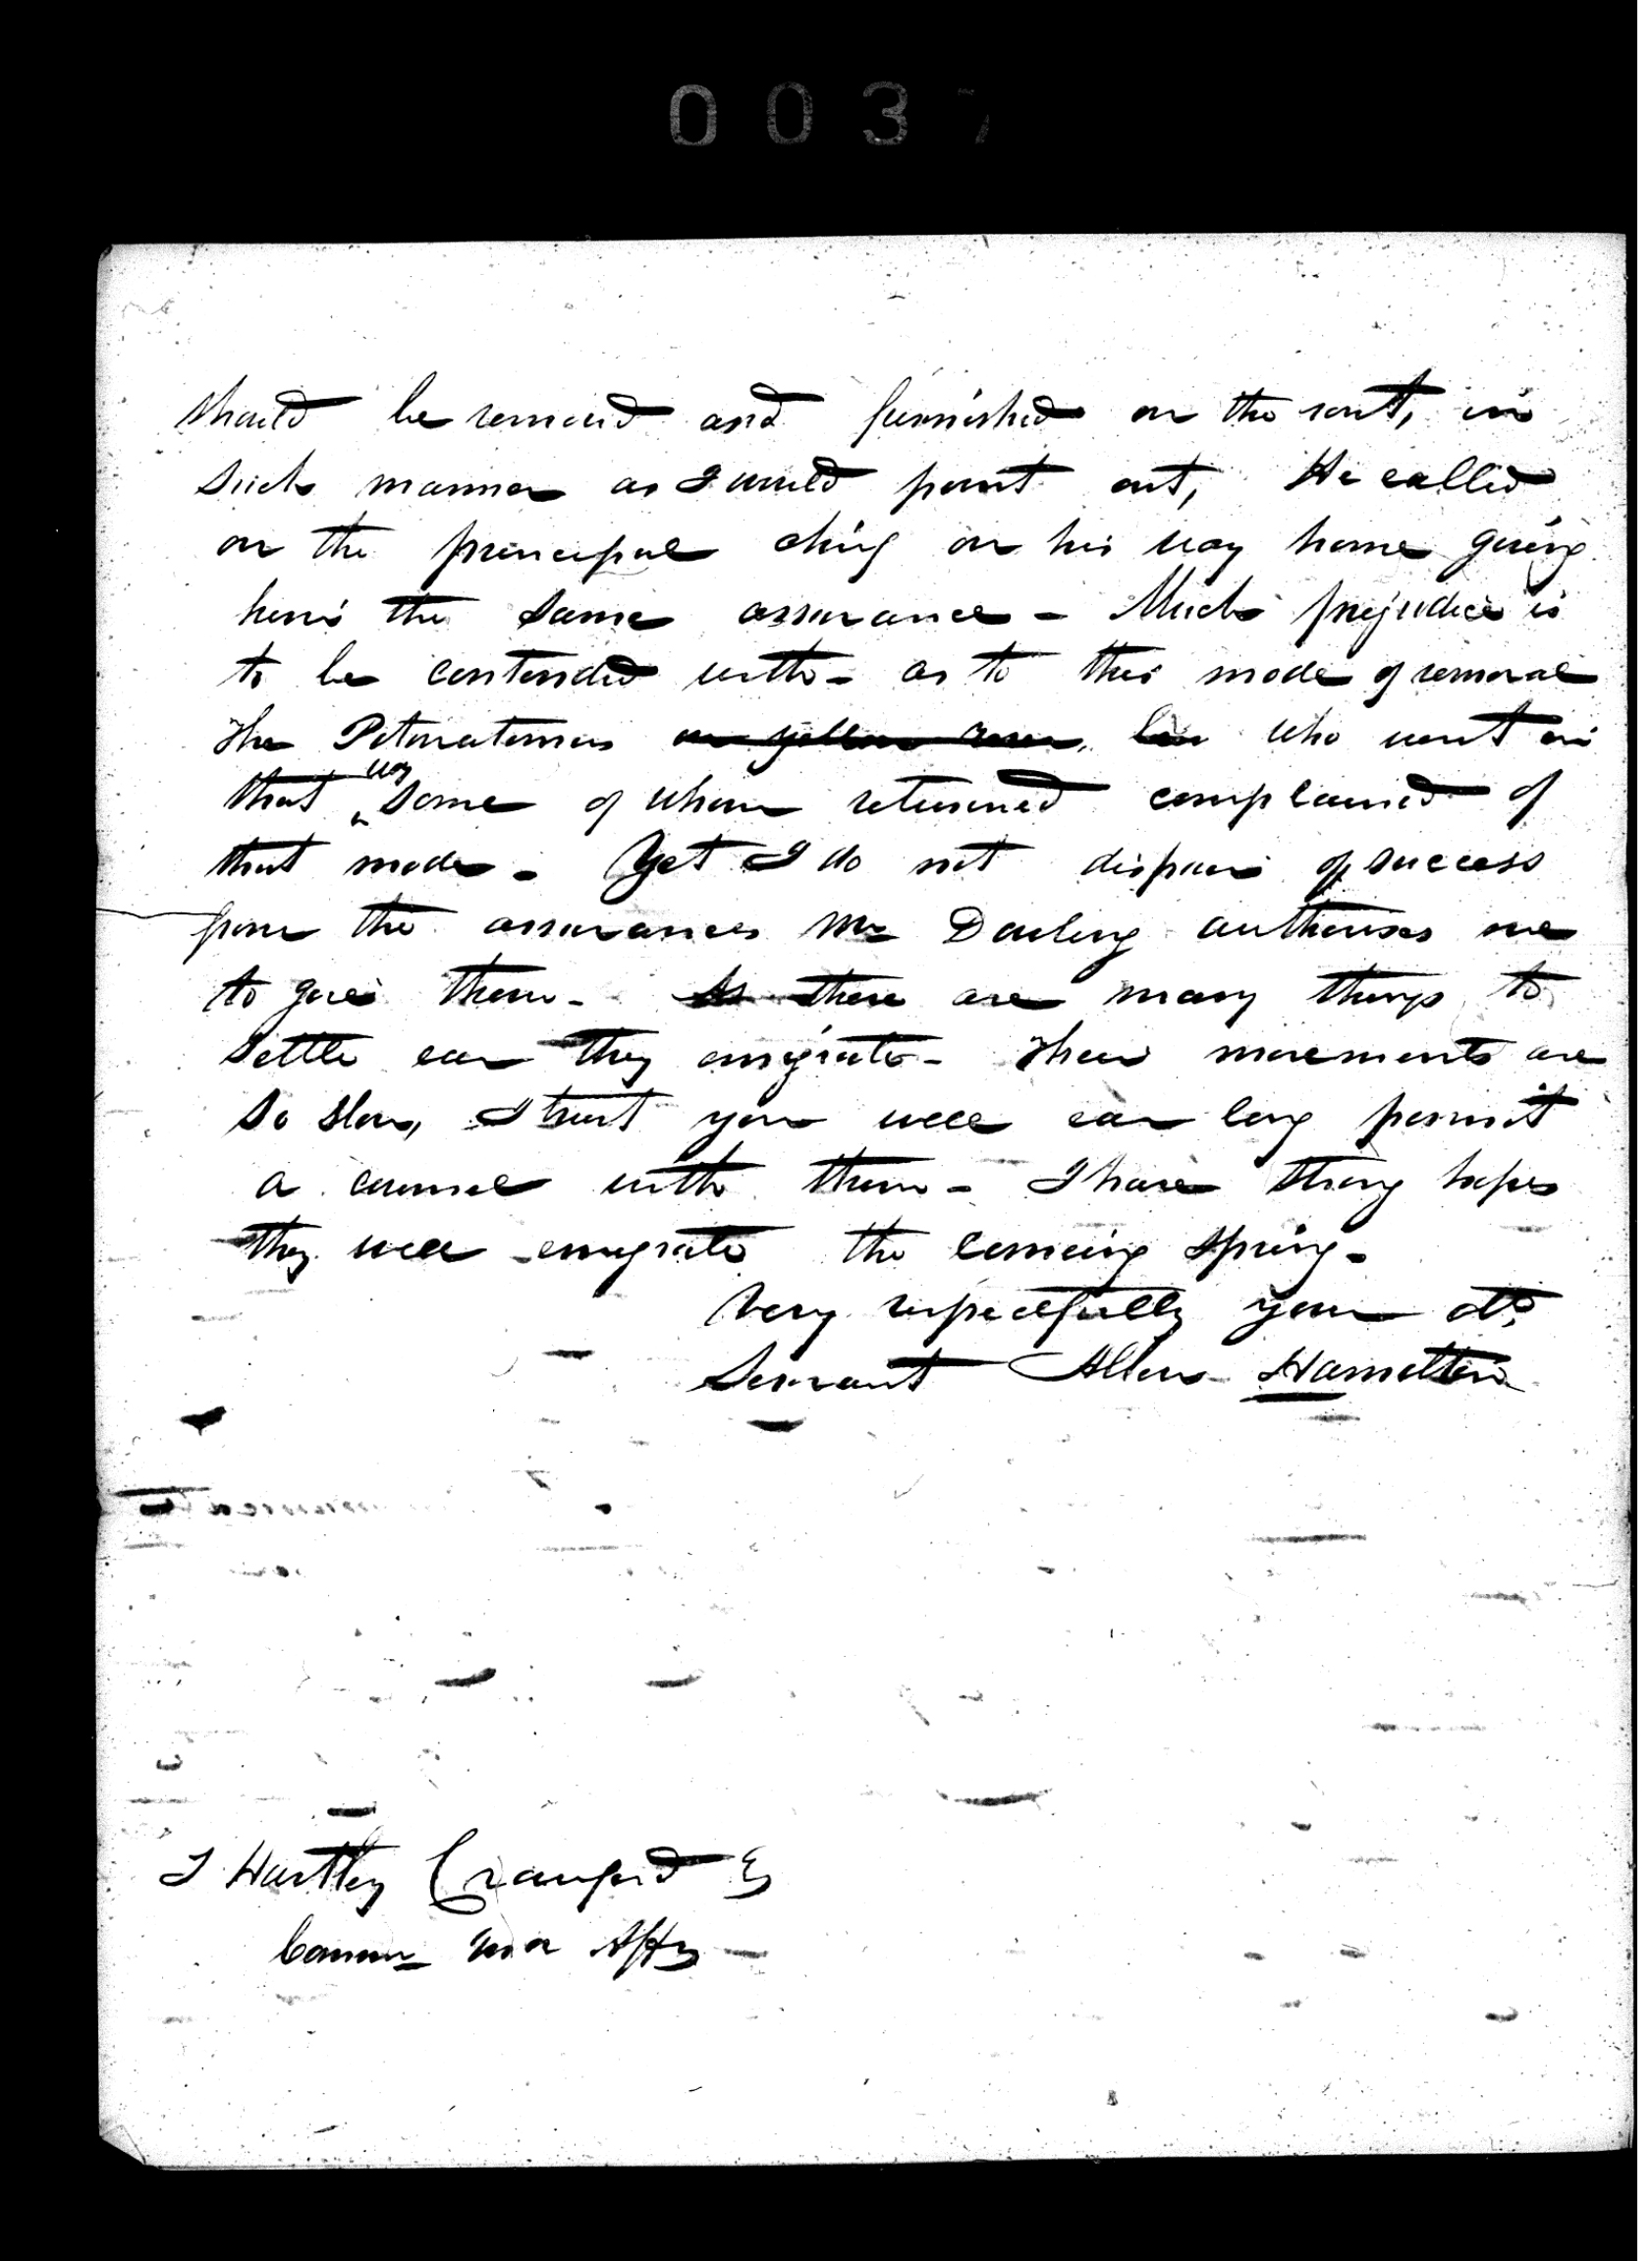 0037
should be removed and furnished on the rout, in
such manner as I would point out, He called
on the principal chief on his way home giving
him the same assurance - Much prejudice is
to be contended with - as to this mode of removal
The Potawatomies on yellow river, who went in
that way some of whom returned complained of
that mode - Yet I do not dispair of success
from the assurances Mr Dowling authorises me
to give them - As there are many things to
settle ear they emigrate - Their movements are
so slow, I trust you will ear long permit
a council with them - I have strong hopes
they will emigrate the comeing Spring -
Very respectfully your obt
Servant Allen Hamilton
T Hartley Crawford Esq
Comm Ind Affs